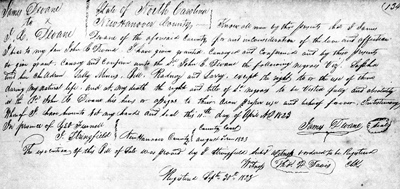 James Devane
to
J. C. Devane
State of North Carolina
New Hanover County
134
Know all men by these presents that I James
Devane of the aforesaid County for and in consideration of the love and affection
I have to my son John C. Devane I have given granted conveyed and confirmed and by these presents
do give grant convey and confirm unto the sd. John C. Devane the following negroes Viz Sophia
and her children Sally and Lucy except the right to or the use of them
during my natural life and at my death the right and title of sd. negroes to be vested fully and absolutely
in the sd. John C. Devane his heirs or assigns to their own proper use and behoof forever. In testimony
whereof I have hereunto set my hand and seal this 15th day of April AD 1823
In presence of
James Devane (Seal)
J. Stringfield
New Hanover County County Court August Term 1823
The execution of this Bill of Sale was proved by J. Stringfield ordered to be Registered
Witness Clk
Registered Sept. 30th 1823